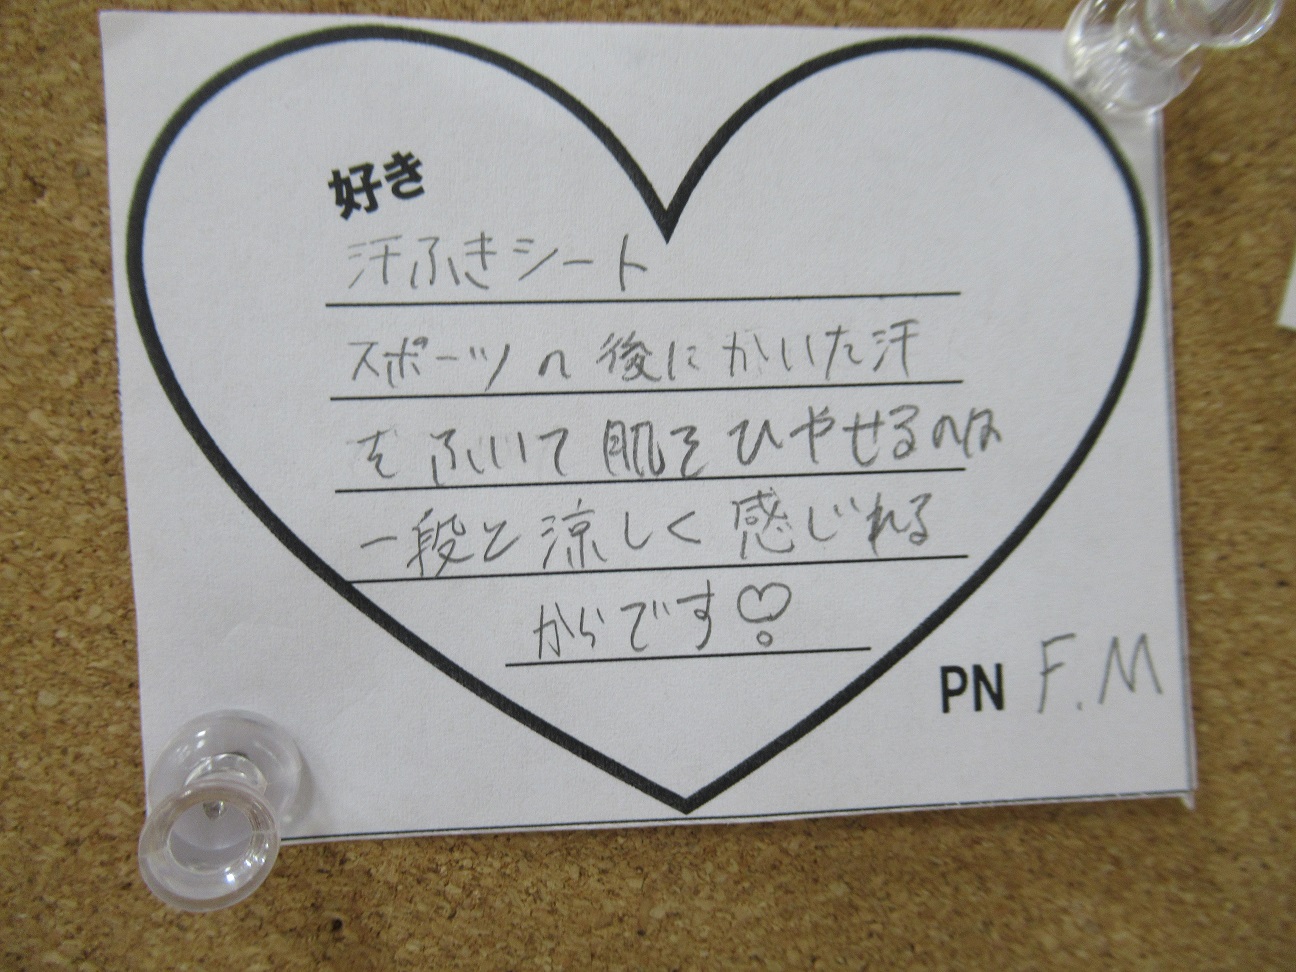 好き
汗ふきシート
スポーツの後にかいた汗
をふいて肌をひやせるのは
一段と涼しく感じれる
からです♡
PN F.M